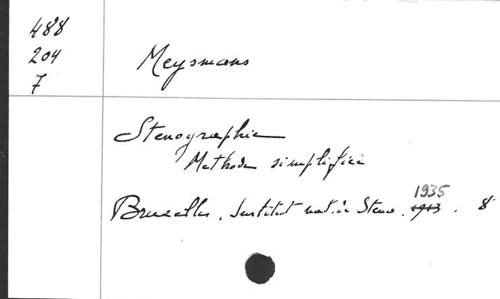 488
204
7
Meysmans
Stenographie
Methode simplifiée
Bruxelles, Institut nat. Steno. 1935 1913. 8